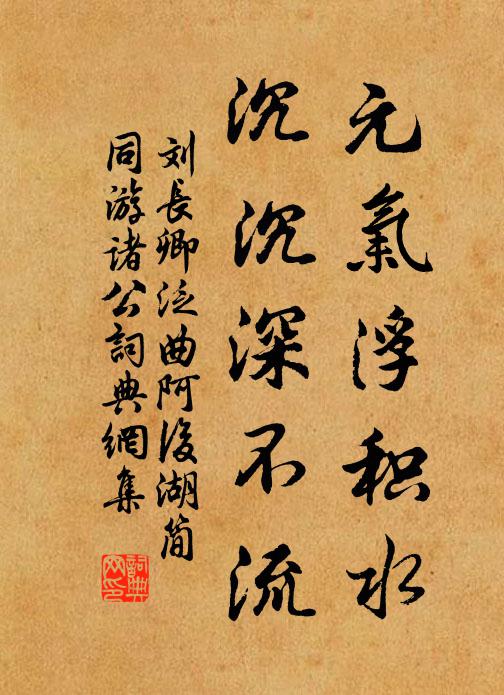 元氣浮积水
沉沉深不流
刘長卿泛曲阿後湖簡
同游诸公詞典網集
詞典网印